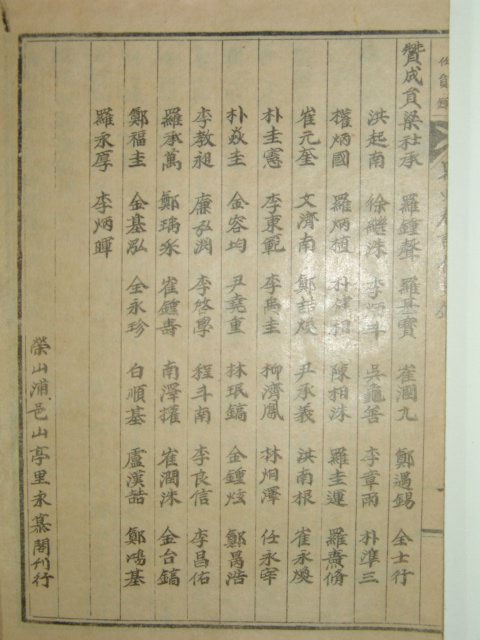 贊成員梁社承 羅鍾聲 羅基寶 崔潤九 鄭遇錫 全士行
洪起南 徐繼洙 李炳斗 吳龜善 李章雨 朴準三
權炳國 羅炳植 陳柏洙 羅圭運 羅燾脩
崔元奎 文濟南 鄭喆煥 尹承義 洪南根 崔永煥
朴圭憲 李東範 李禹圭 柳濟鳳 林炯澤 任永宰
朴焱圭 金容均 尹堯重 林珉鎬 金鍾炫 鄭昺浩
李教祖 廉弘淵 李啓學 程斗南 李良信 李昌佑
羅承萬 鄭瑀采 崔鍾壽 南澤擢 崔潤洙 金台鎬
鄭福圭 金基泓 金永珍 白順基 盧漢喆 鄭鴻基
羅永厚 李炳暉
榮山浦邑山亭里永慕閣刊行